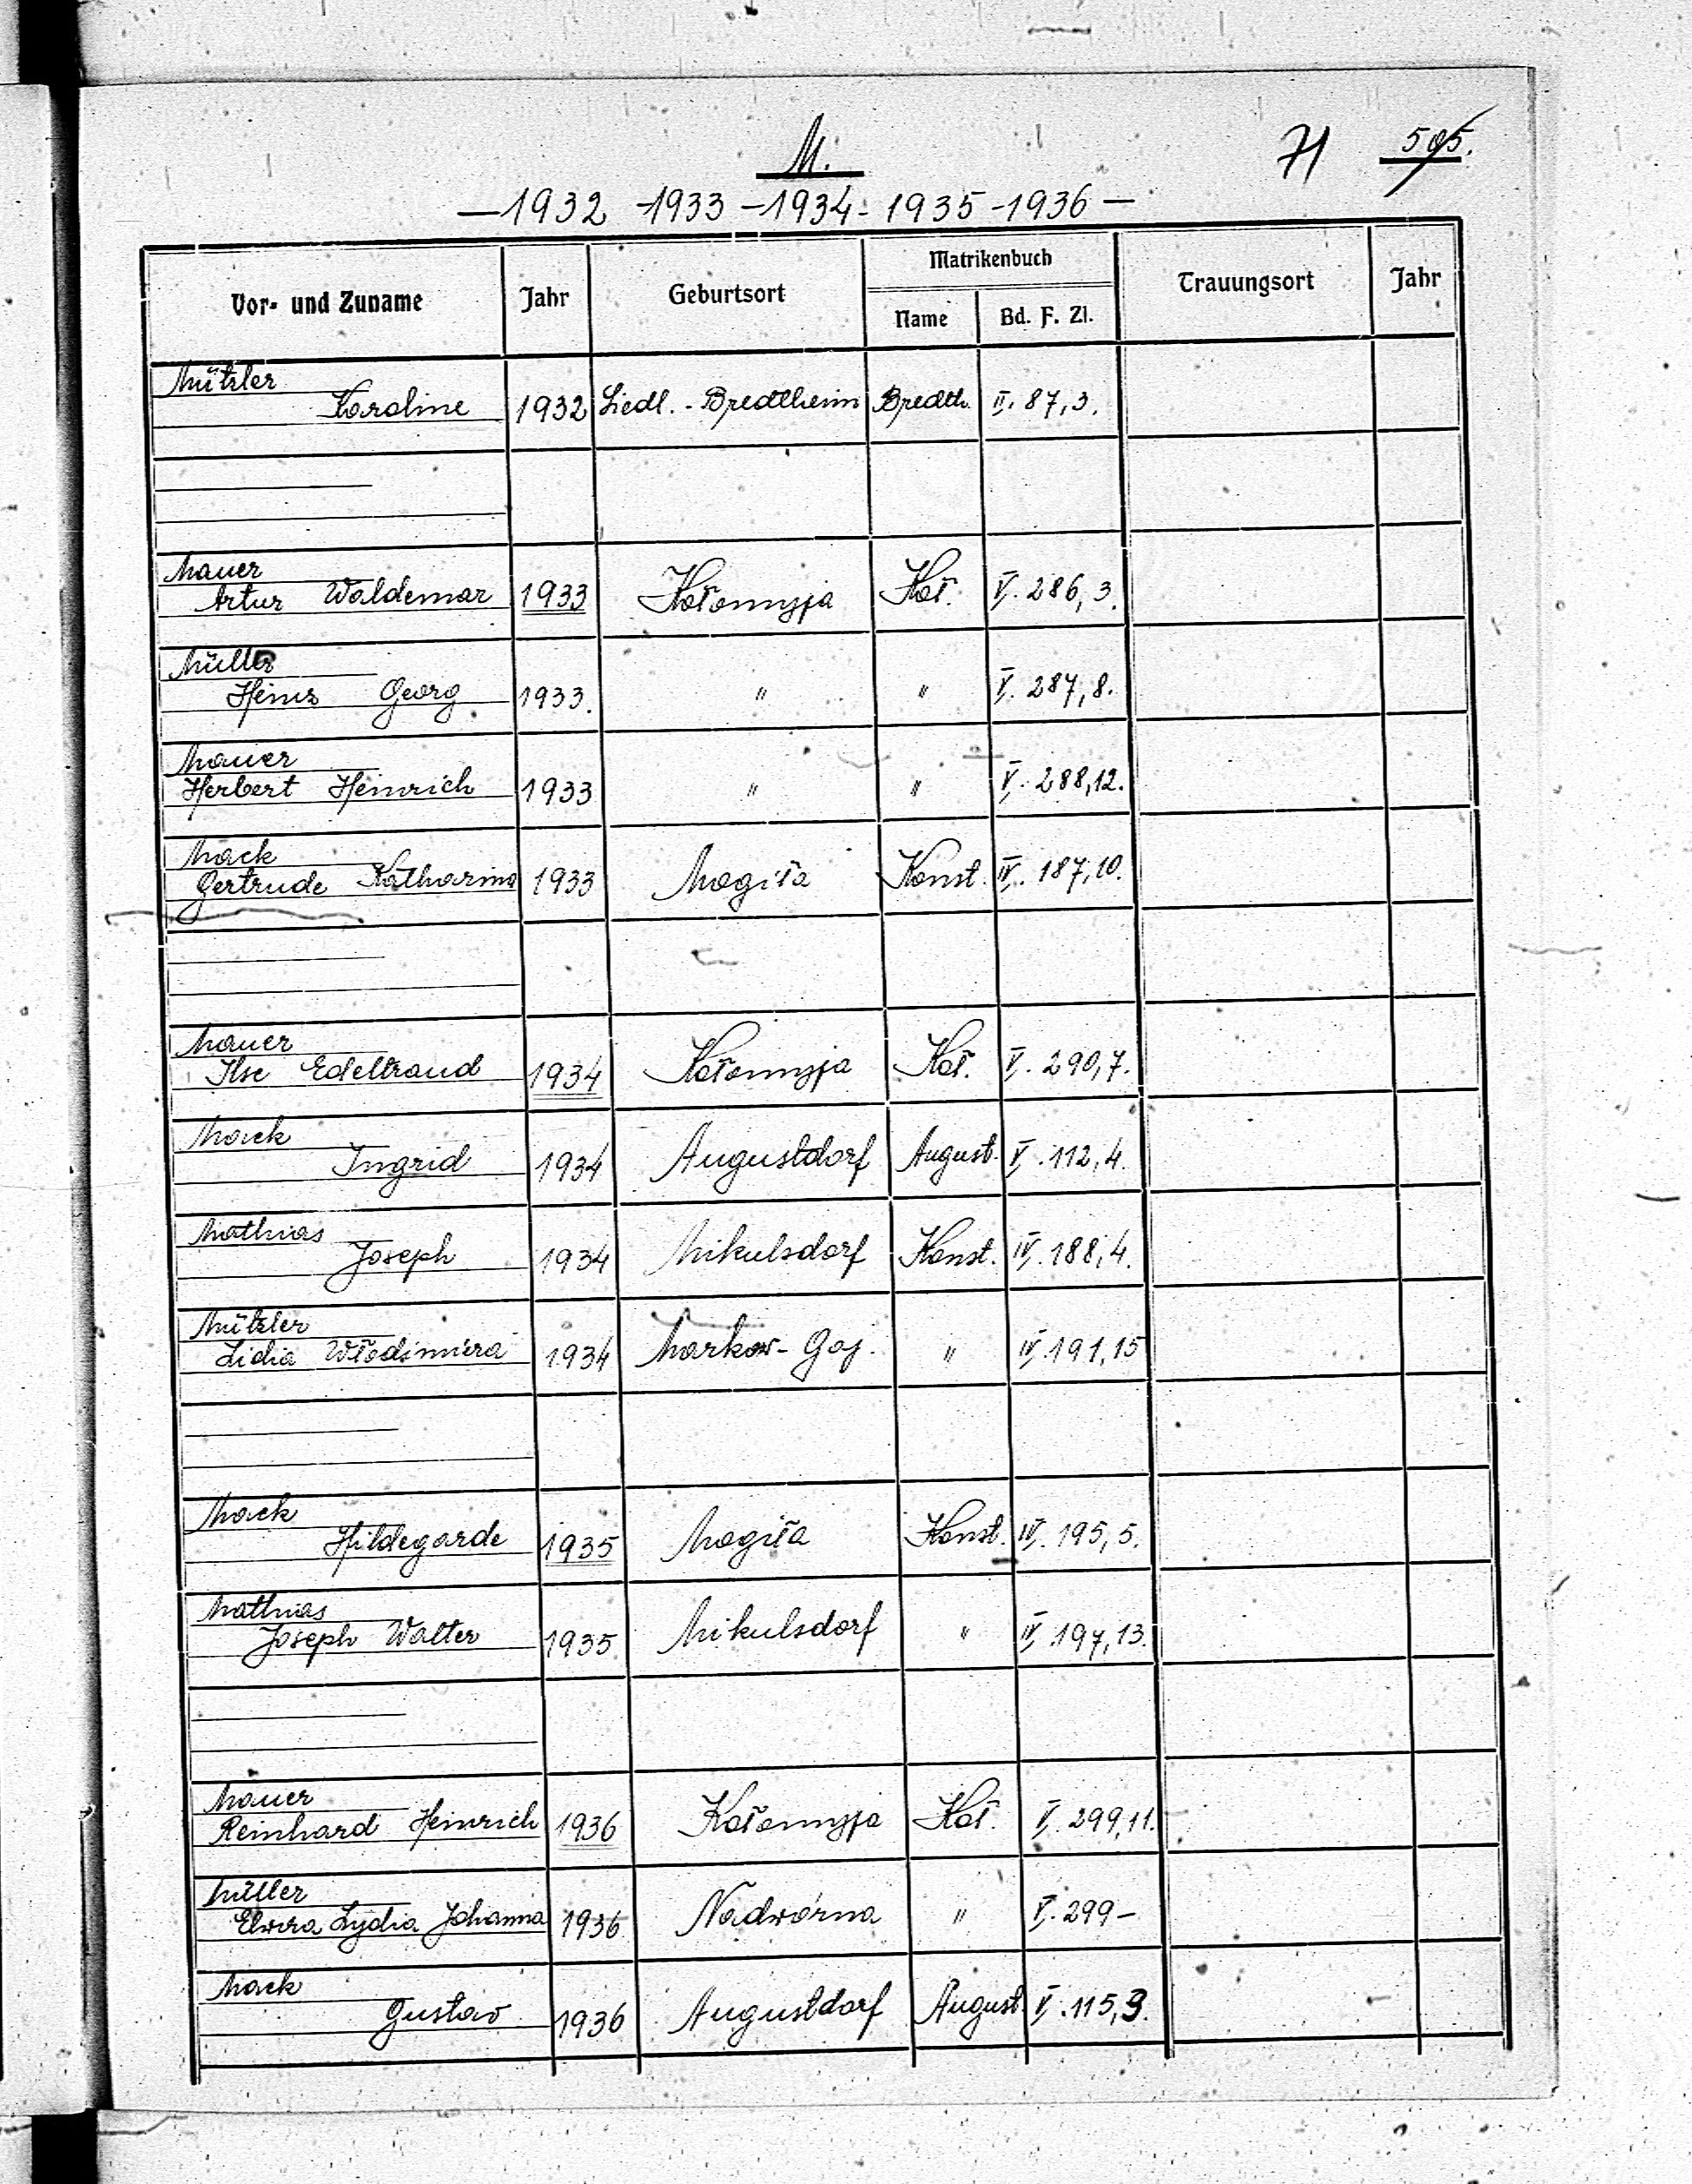 M.
71 505.
—1932 -1933 -1934 - 1935 -1936 —
Vor- und Zuname Jahr Geburtsort Matrikenbuch Trauungsort Jahr
Name Bd. F. Zl.
Mützler
Karoline 1932 Siedl. - Bredtheim Bredth. II. 87,3.
Mauer
Artur Waldemar 1933 Kołomyja Koł. V. 286,3.
Müller
Heinz Georg 1933. " " V. 287,8.
Mauer
Herbert Heinrich 1933 " " V. 288,12.
Mack
Gertrude Katharina 1933 Mogiła Konst. IV. 187,10.
Mauer
Ilse Edeltraud 1934 Kołomyja Koł. V. 290,7.
Mack
Ingrid 1934 Augustdorf August. V. 112,4.
Mathias
Joseph 1934 Mikulsdorf Konst. IV. 188,4.
Mützler
Lidia Włodimiera 1934 Markow- Gaj. " IV. 191,15
Mack
Hildegarde 1935 Mogiła Konst. IV. 195,5.
Mathias
Joseph Walter 1935 Mikulsdorf " IV. 197,13.
Mauer
Reinhard Heinrich 1936 Kołomyja Koł. V. 299,11.
Müller
Elwira Lydia Johanna 1936 Nadwórna " V. 299 -
Mack
Gustav 1936 Augustdorf August. V. 115,3.